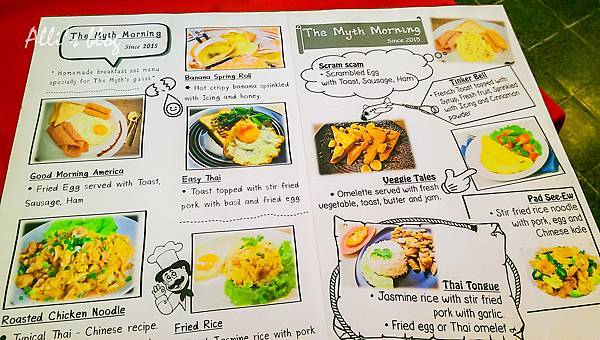 Alli's blog
The Myth Morning
Since 2015
" Homemade breakfast set menu
specially for The Myth's guest."
Good Morning America
• Fried Egg served with Toast,
Sausage, Ham
Roasted Chicken Noodle
• Typical Thai - Chinese recipe.
Banana Spring Roll
• Hot crispy banana sprinkled
with Icing and honey.
Easy Thai
• Toast topped with stir fried
pork with basil and fried egg
Fried Rice
Jasmine rice with pork
The Myth Morning
Since 2015
Scram scam
• Scrambled Egg
with Toast, Sausage, Ham
Tinker Bell
• French Toast topped with
Syrup, Fresh fruit, Sprinkled
with Icing and Cinnamon
powder
Veggie Tales
• Omelette served with fresh
vegetable, toast, butter and jam.
Pad See-Ew
• Stir fried rice noodle
with pork, egg and
Chinese kale
Thai Tongue
• Jasmine rice with stir fried
pork with garlic.
• Fried egg or Thai omelet